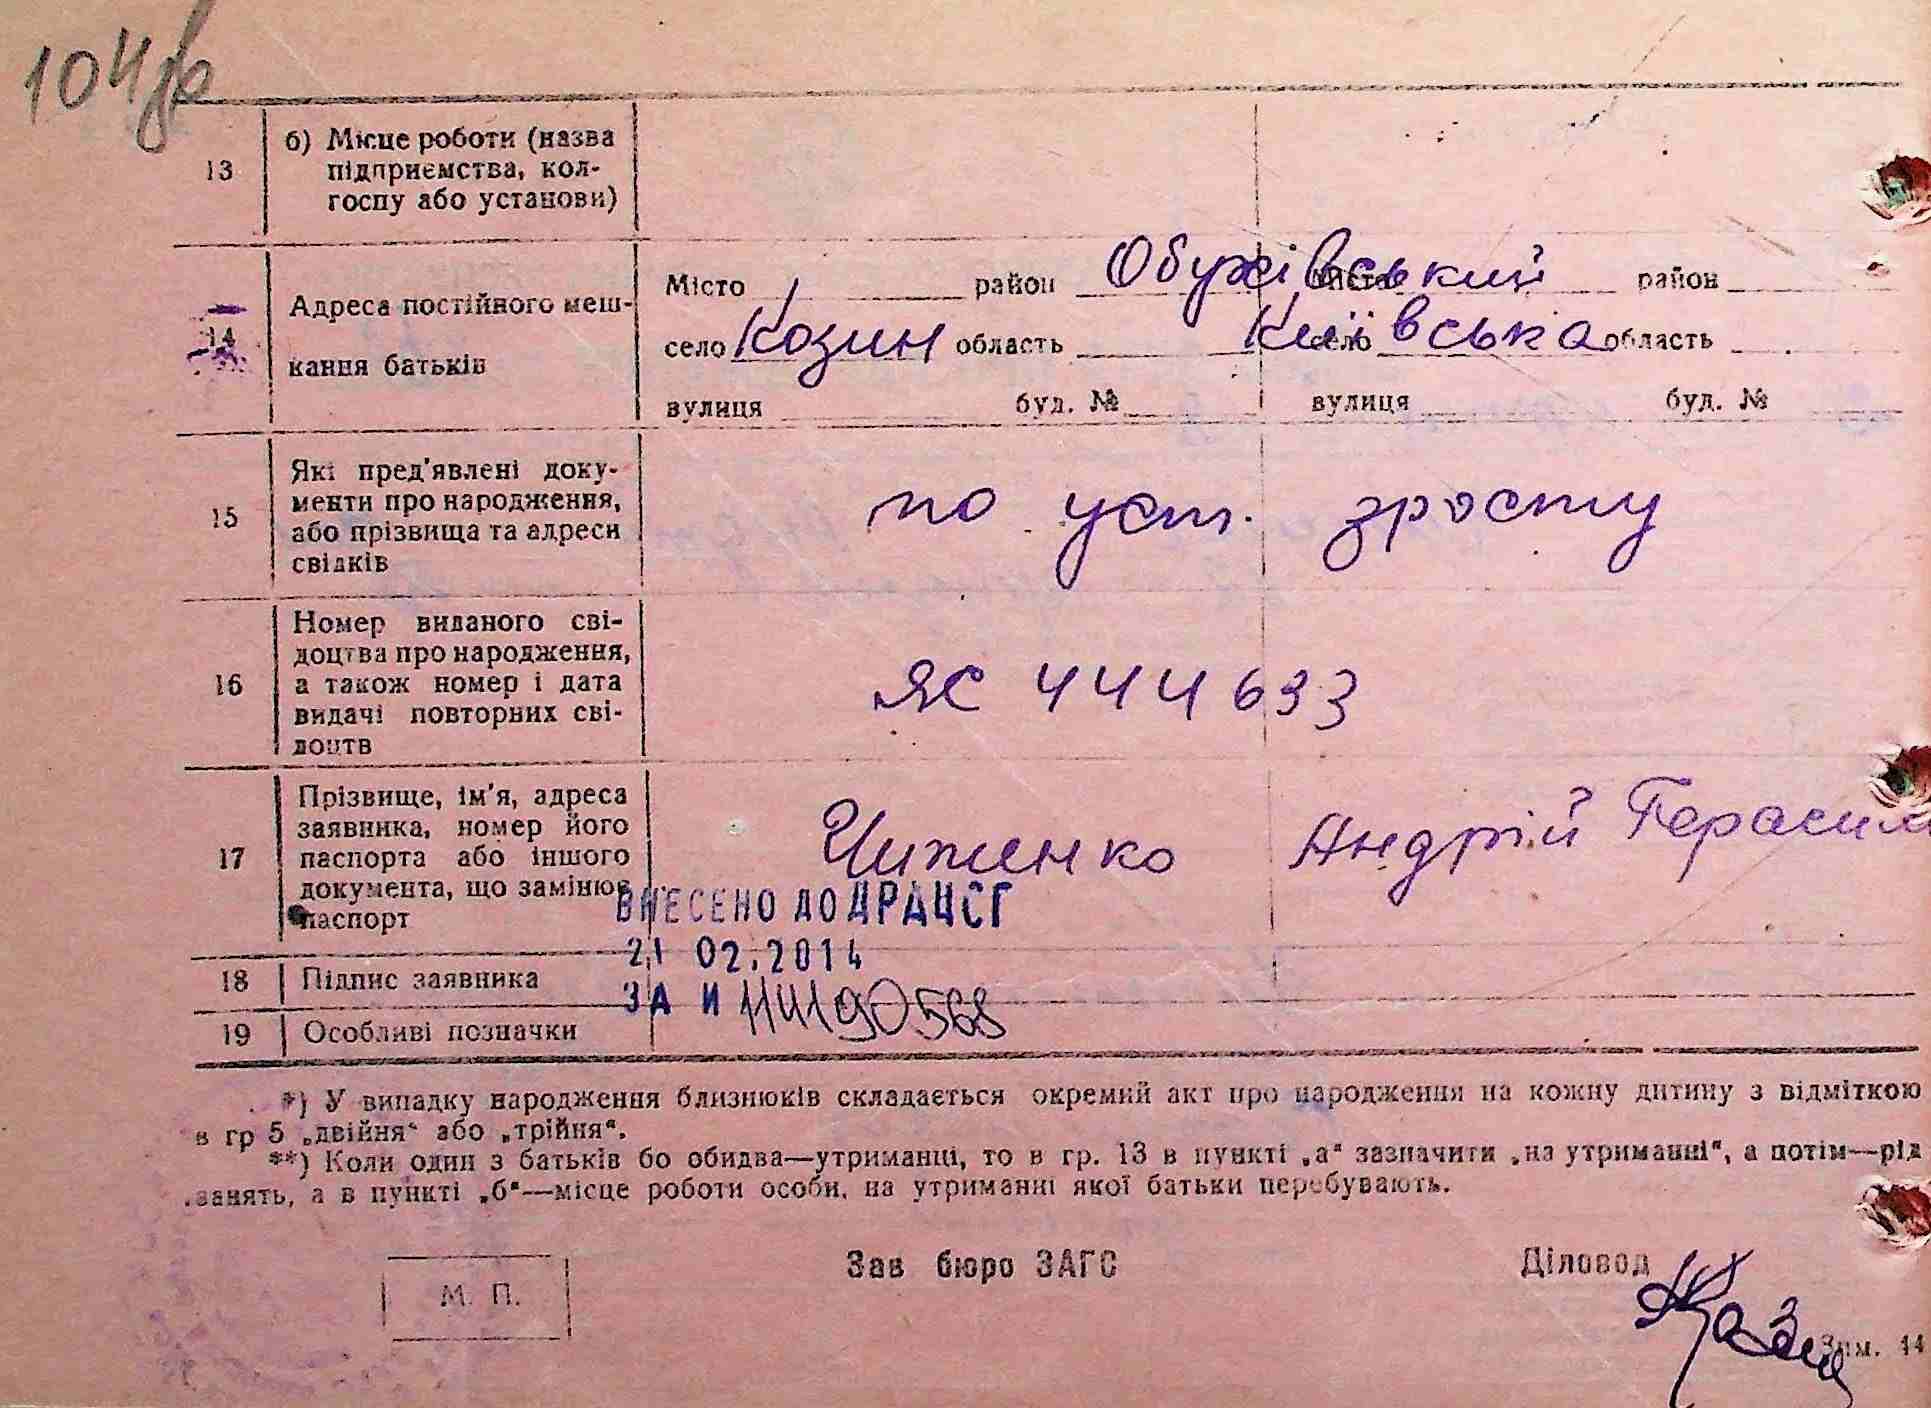 104
13
б) Місце роботи (назва
підприємства, кол-
госпу або установи)
14
Адреса постійного меш-
кання батьків
Місто район Обухівський місто район
село Козин область Київська село область
вулиця буд. № вулиця буд. №
15
Які пред'явлені доку-
менти про народження,
або прізвища та адреси
свідків
по уст. зросту
16
Номер виданого сві-
доцтва про народження,
а також номер і дата
видачі повторних сві-
доцтв
ЯС 444633
17
Прізвище, ім'я, адреса
заявника, номер його
паспорта або іншого
документа, що замінює
паспорт
Чиженко Андрій Герасим
ВНЕСЕНО ДО ДРАЦСГ
21 02.2014
ЗА И
18 Підпис заявника
19 Особливі позначки
*) У випадку народження близнюків складається окремий акт про народження на кожну дитину з відміткою
в гр 5 „двійня“ або „трійня“.
**) Коли один з батьків бо обидва—утриманці, то в гр. 13 в пункті „а“ зазначити „на утриманні“, а потім—рід
занять, а в пункті „б“—місце роботи особи, на утриманні якої батьки перебувають.
М. П.
Зав бюро ЗАГС
Діловод
Зим. 44